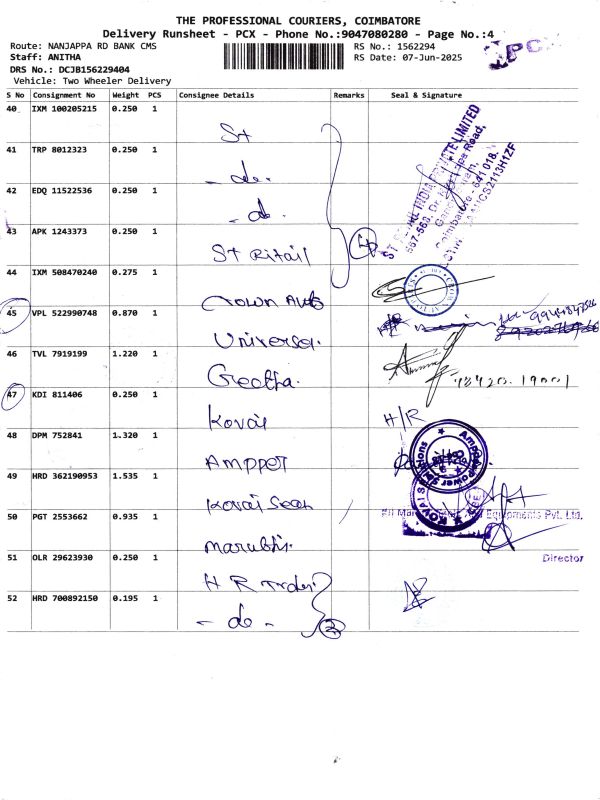 THE PROFESSIONAL COURIERS, COIMBATORE
Delivery Runsheet - PCX - Phone No.:9047080280 - Page No.:4
PCX
Route: NANJAPPA RD BANK CMS
RS No.: 1562294
Staff: ANITHA
RS Date: 07-Jun-2025
DRS No.: DCJB156229404
Vehicle: Two Wheeler Delivery
S No Consignment No Weight PCS Consignee Details Remarks Seal & Signature
40 IXM 100205215 0.250 1 St
41 TRP 8012323 0.250 1 - do.
42 EDQ 11522536 0.250 1 - do.
43 APK 1243373 0.250 1 St Ritail 4
44 IXM 508470240 0.275 1 Crown Auto
45 VPL 522990748 0.870 1 Universa.
46 TVL 7919199 1.220 1 Geetha.
47 KDI 811406 0.250 1 Kovai H/R
48 DPM 752841 1.320 1 Amppet
49 HRD 362190953 1.535 1 Kovai
50 PGT 2553662 0.935 1
Equipments Pvt. Ltd.
51 OLR 29623930 0.250 1 H R
Director
52 HRD 700892150 0.195 1 - do - 2